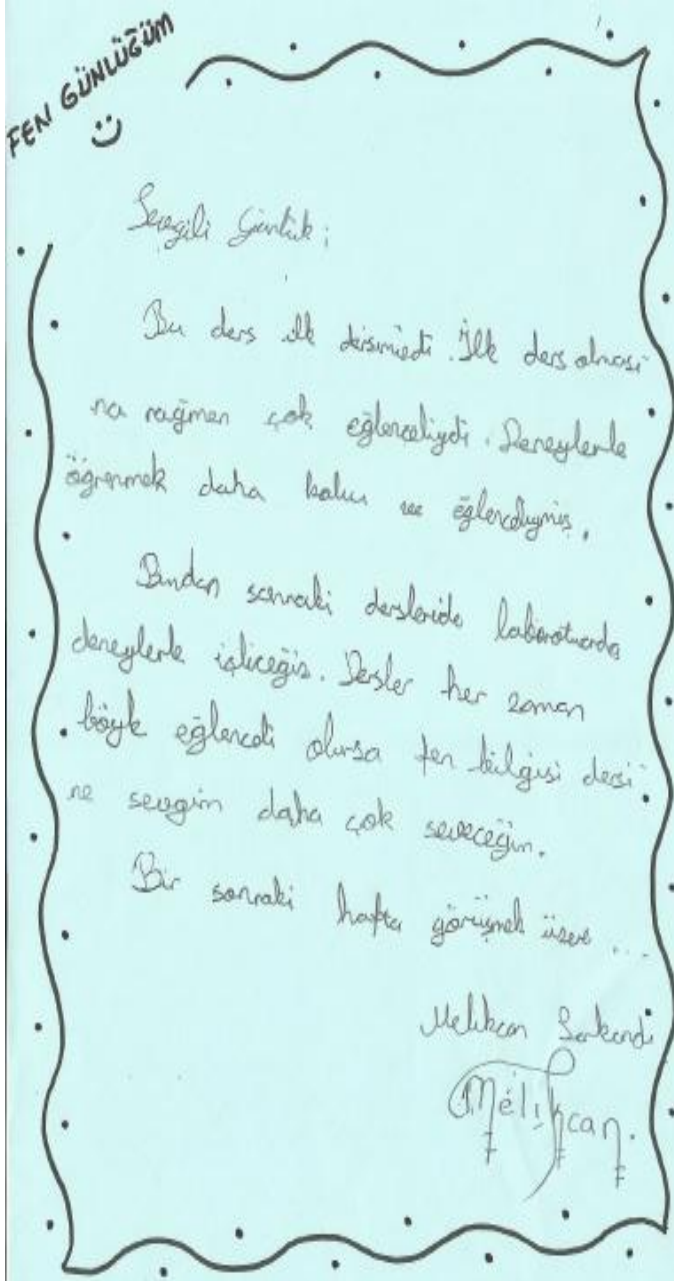 FEN GÜNLÜĞÜM
Sevgili Günlük;
Bu ders ilk dersimizdi. İlk ders olması
na rağmen çok eğlenceliydi. Deneylerle
öğrenmek daha kalıcı ve eğlenceliymiş.
Bundan sonraki dersleride laboratuarda
deneylerle işliceğiz. Dersler her zaman
böyle eğlenceli olursa fen bilgisi dersi
ne sevgim daha çok seveceğim.
Bir sonraki hafta görüşmek üzere ...
Melihcan
Melihcan.